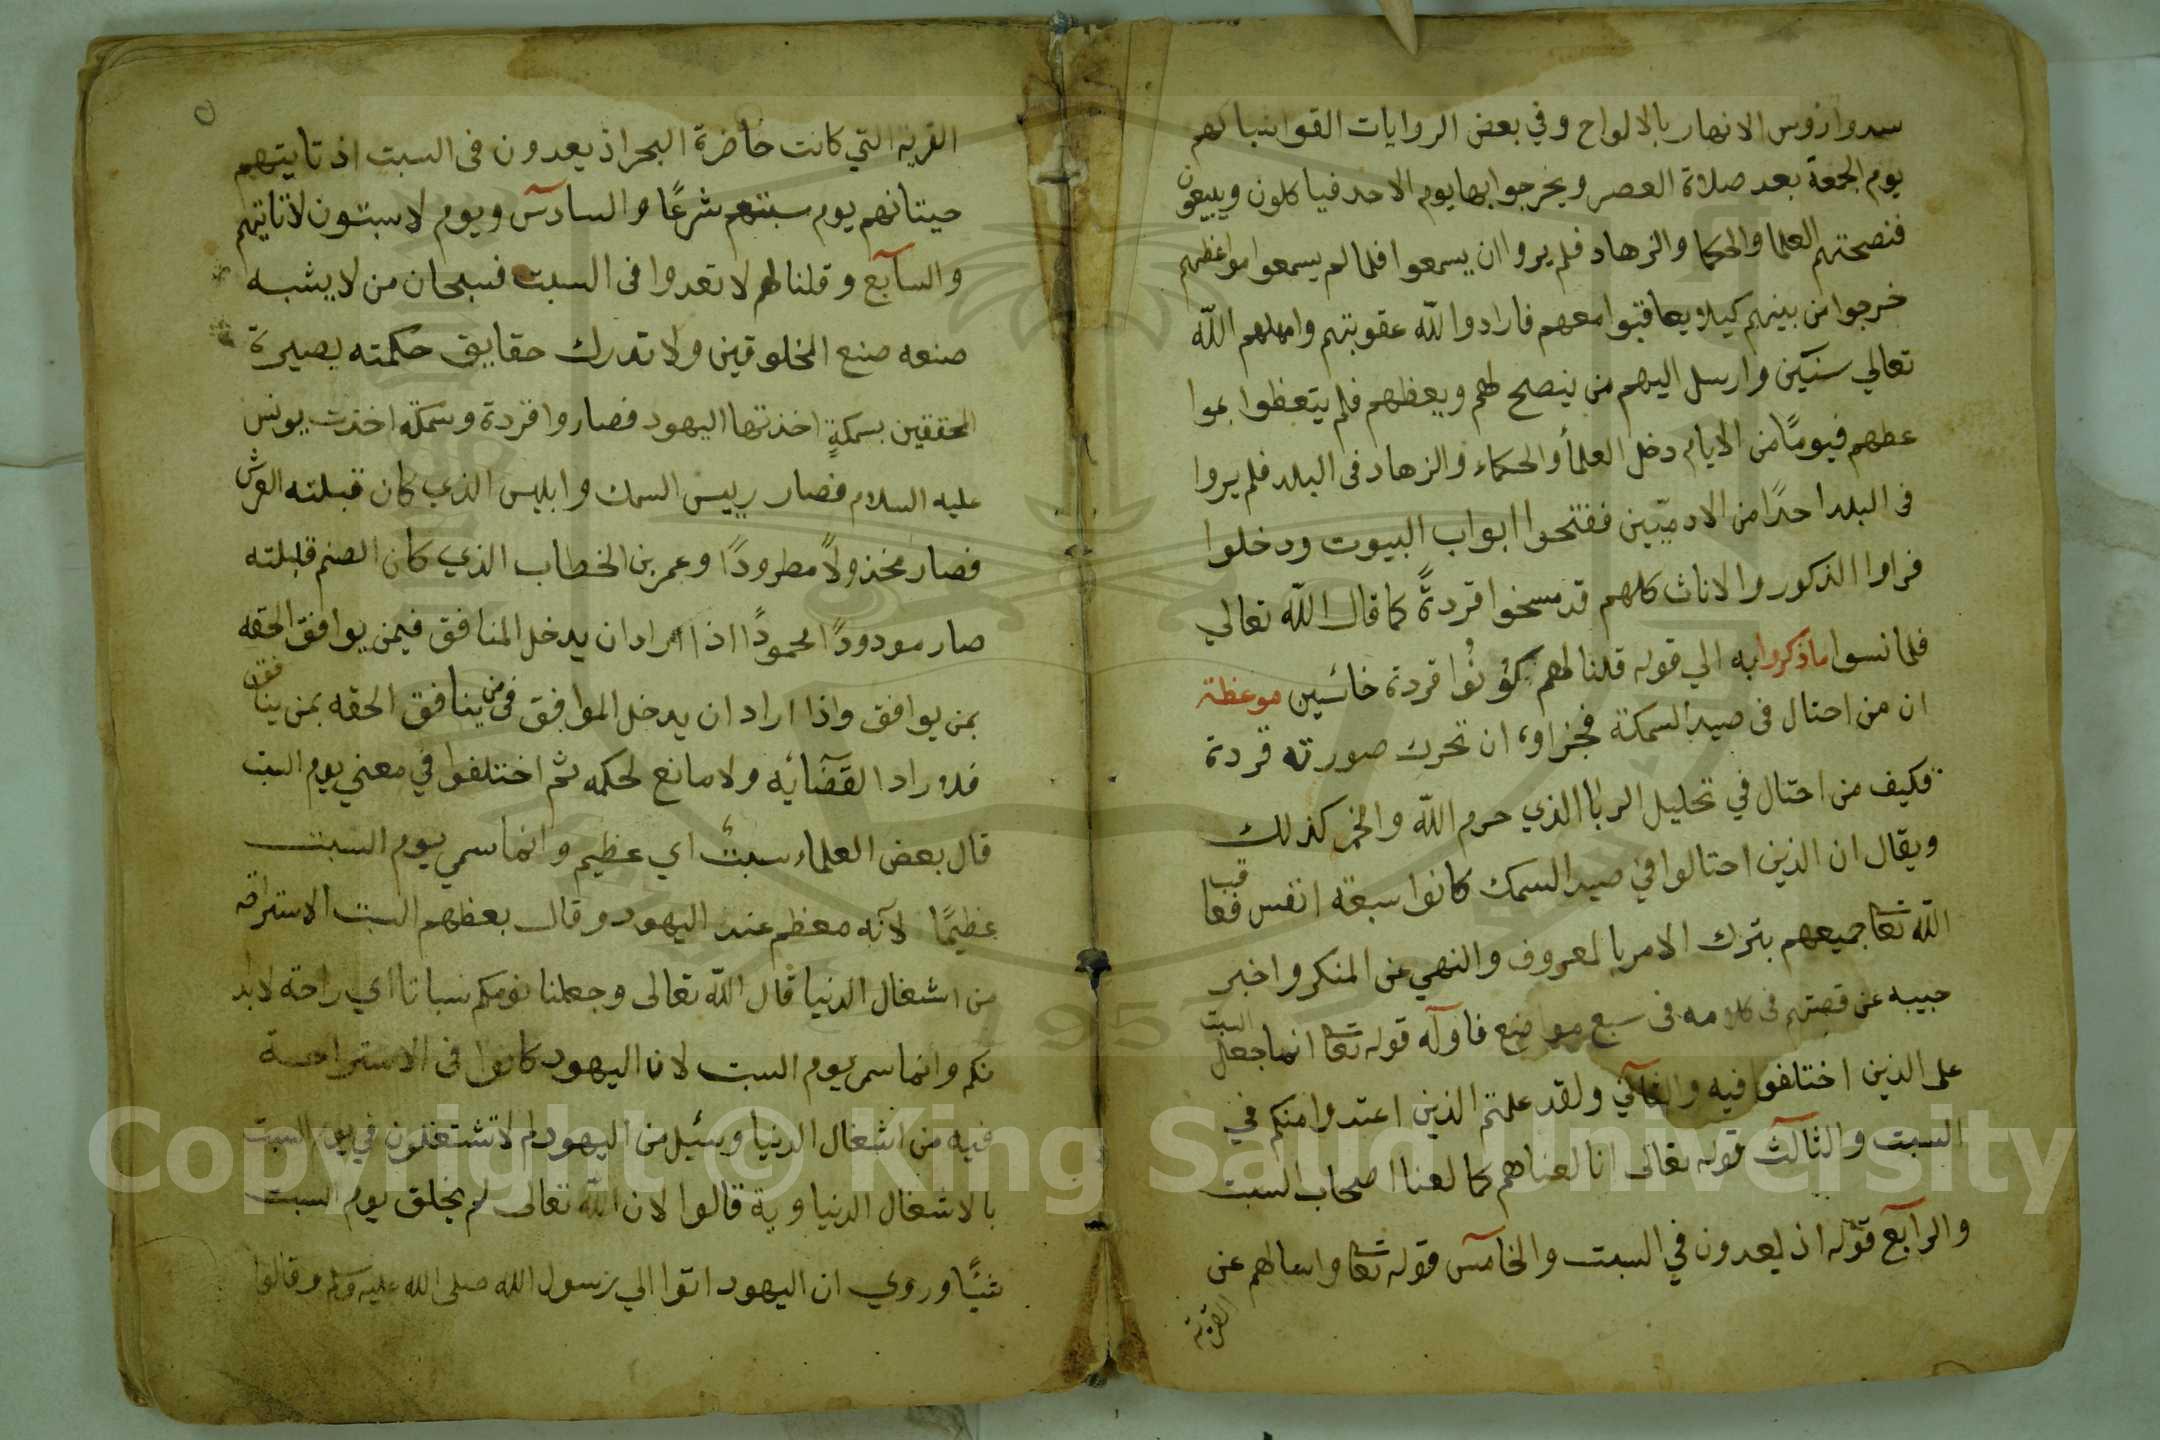 سدوا رؤس الانهار بالالواح وفي بعض الروايات القوا شباكهم
يوم الجمعة بعد صلاة العصر ويخرجوا بها يوم الاحد فيا كلون ويبيعون
فنصحتهم العلما والحكما والزهاد فلم يروا ان يسمعوا فلما لم يسمعوا مواعظهم
خرجوا من بينهم كيلا يعاقبوا معهم فارادوا لله عقوبتهم وامهلهم الله
تعالي سنتين وارسل اليهم من ينصح لهم ويعظهم فلم يتعظوا بموا
عظهم فيومًا من الايام دخل العلمأ والحكماء والزهاد فى البلد فلم يروا
فى البلد احدًا من الادميّين ففتحوا ابواب البيوت ودخلوا
فراوا الذكور والاناث كلهم قد مسخوا قردةً كما قال الله تعالي
فلما نسوا ماذكروا به الي قوله قلنا لهم كُونُوا قردة خائسين موعظة
ان من احتال فى صيد السمكة فجزاوء ان تحرك صورته قردة
فكيف من احتال في تحليل الربا الذي حرم الله والخمر كذلك
ويقال ان الذين احتالوا في صيد السمك كانوا سبعة انفس فعاقب
الله تعا جميعهم بترك الامر بالمعروف والنهي عن المنكر واخبر
حبيبه عن قصتهم فى كلامه فى سبع مواضع فاوله قوله تعا انما جعل السبت
على الذين اختلفوا فيه والثاني ولقد علمتم الذين اعتدوا منكم في
السبت والثالث قوله تعالى انا لعناهم كما لعنا اصحاب السبت
والرابع قوله اذ يعدون في السبت والخامس قوله تعا واسالهم عن
القرية
القرية التي كانت حاضرة البحر اذ يعدون فى السبت اذ تايتهم
حيتانهم يوم سبتهم شرعًا والسادس ويوم لا سبتون لاتاتيهم
والسابع وقلنا لهم لا تعدوا فى السبت فسبحان من لا يشبه
صنعه صنع المخلوقين ولا تدرك حقايق حكمته بصيرة
المحققين بسمكةٍ اخذتها اليهود فصاروا قردة وسمكة اخذت يونس
عليه السلام فصار رييس السمك وابليس الذي كان قبلته العرش
فصار مخذولًا مطرودًا وعمر بن الخطاب الذي كان الصنم قبلته
صار مودودًا محمودًا اذا اراد ان يدخل المنافق فيمن يوافق الحقه
بمن يوافق واذا اراد ان يدخل الموافق فى من ينافق الحقه بمن ينافق
فلا راد القضائه ولا مانع لحكمه ثم اختلفوا في معني يوم السبت
قال بعض العلماء سبتٌ اي عظيم وانما سمي يوم السبت
عظيمًا لانه معظم عند اليهود وقال بعظهم السبت الاستراحة
من اشغال الدنيا قال الله تعالى وجعلنا نومكم سباتا اي راحة لابد
نكم وانما سمى يوم السبت لان اليهود كانوا فى الاستراحة
فيه من اشغال الدنيا وسئيل من اليهود لم لا تشتغلون في يوم السبت
بالاشغال الدنياوية قالوا لان الله تعالى لم يخلق يوم السبت
شيًا وروي ان اليهود اتوا الي رسول الله صلى الله عليه وسلم وقالوا
Copyright © King Saud University
1957